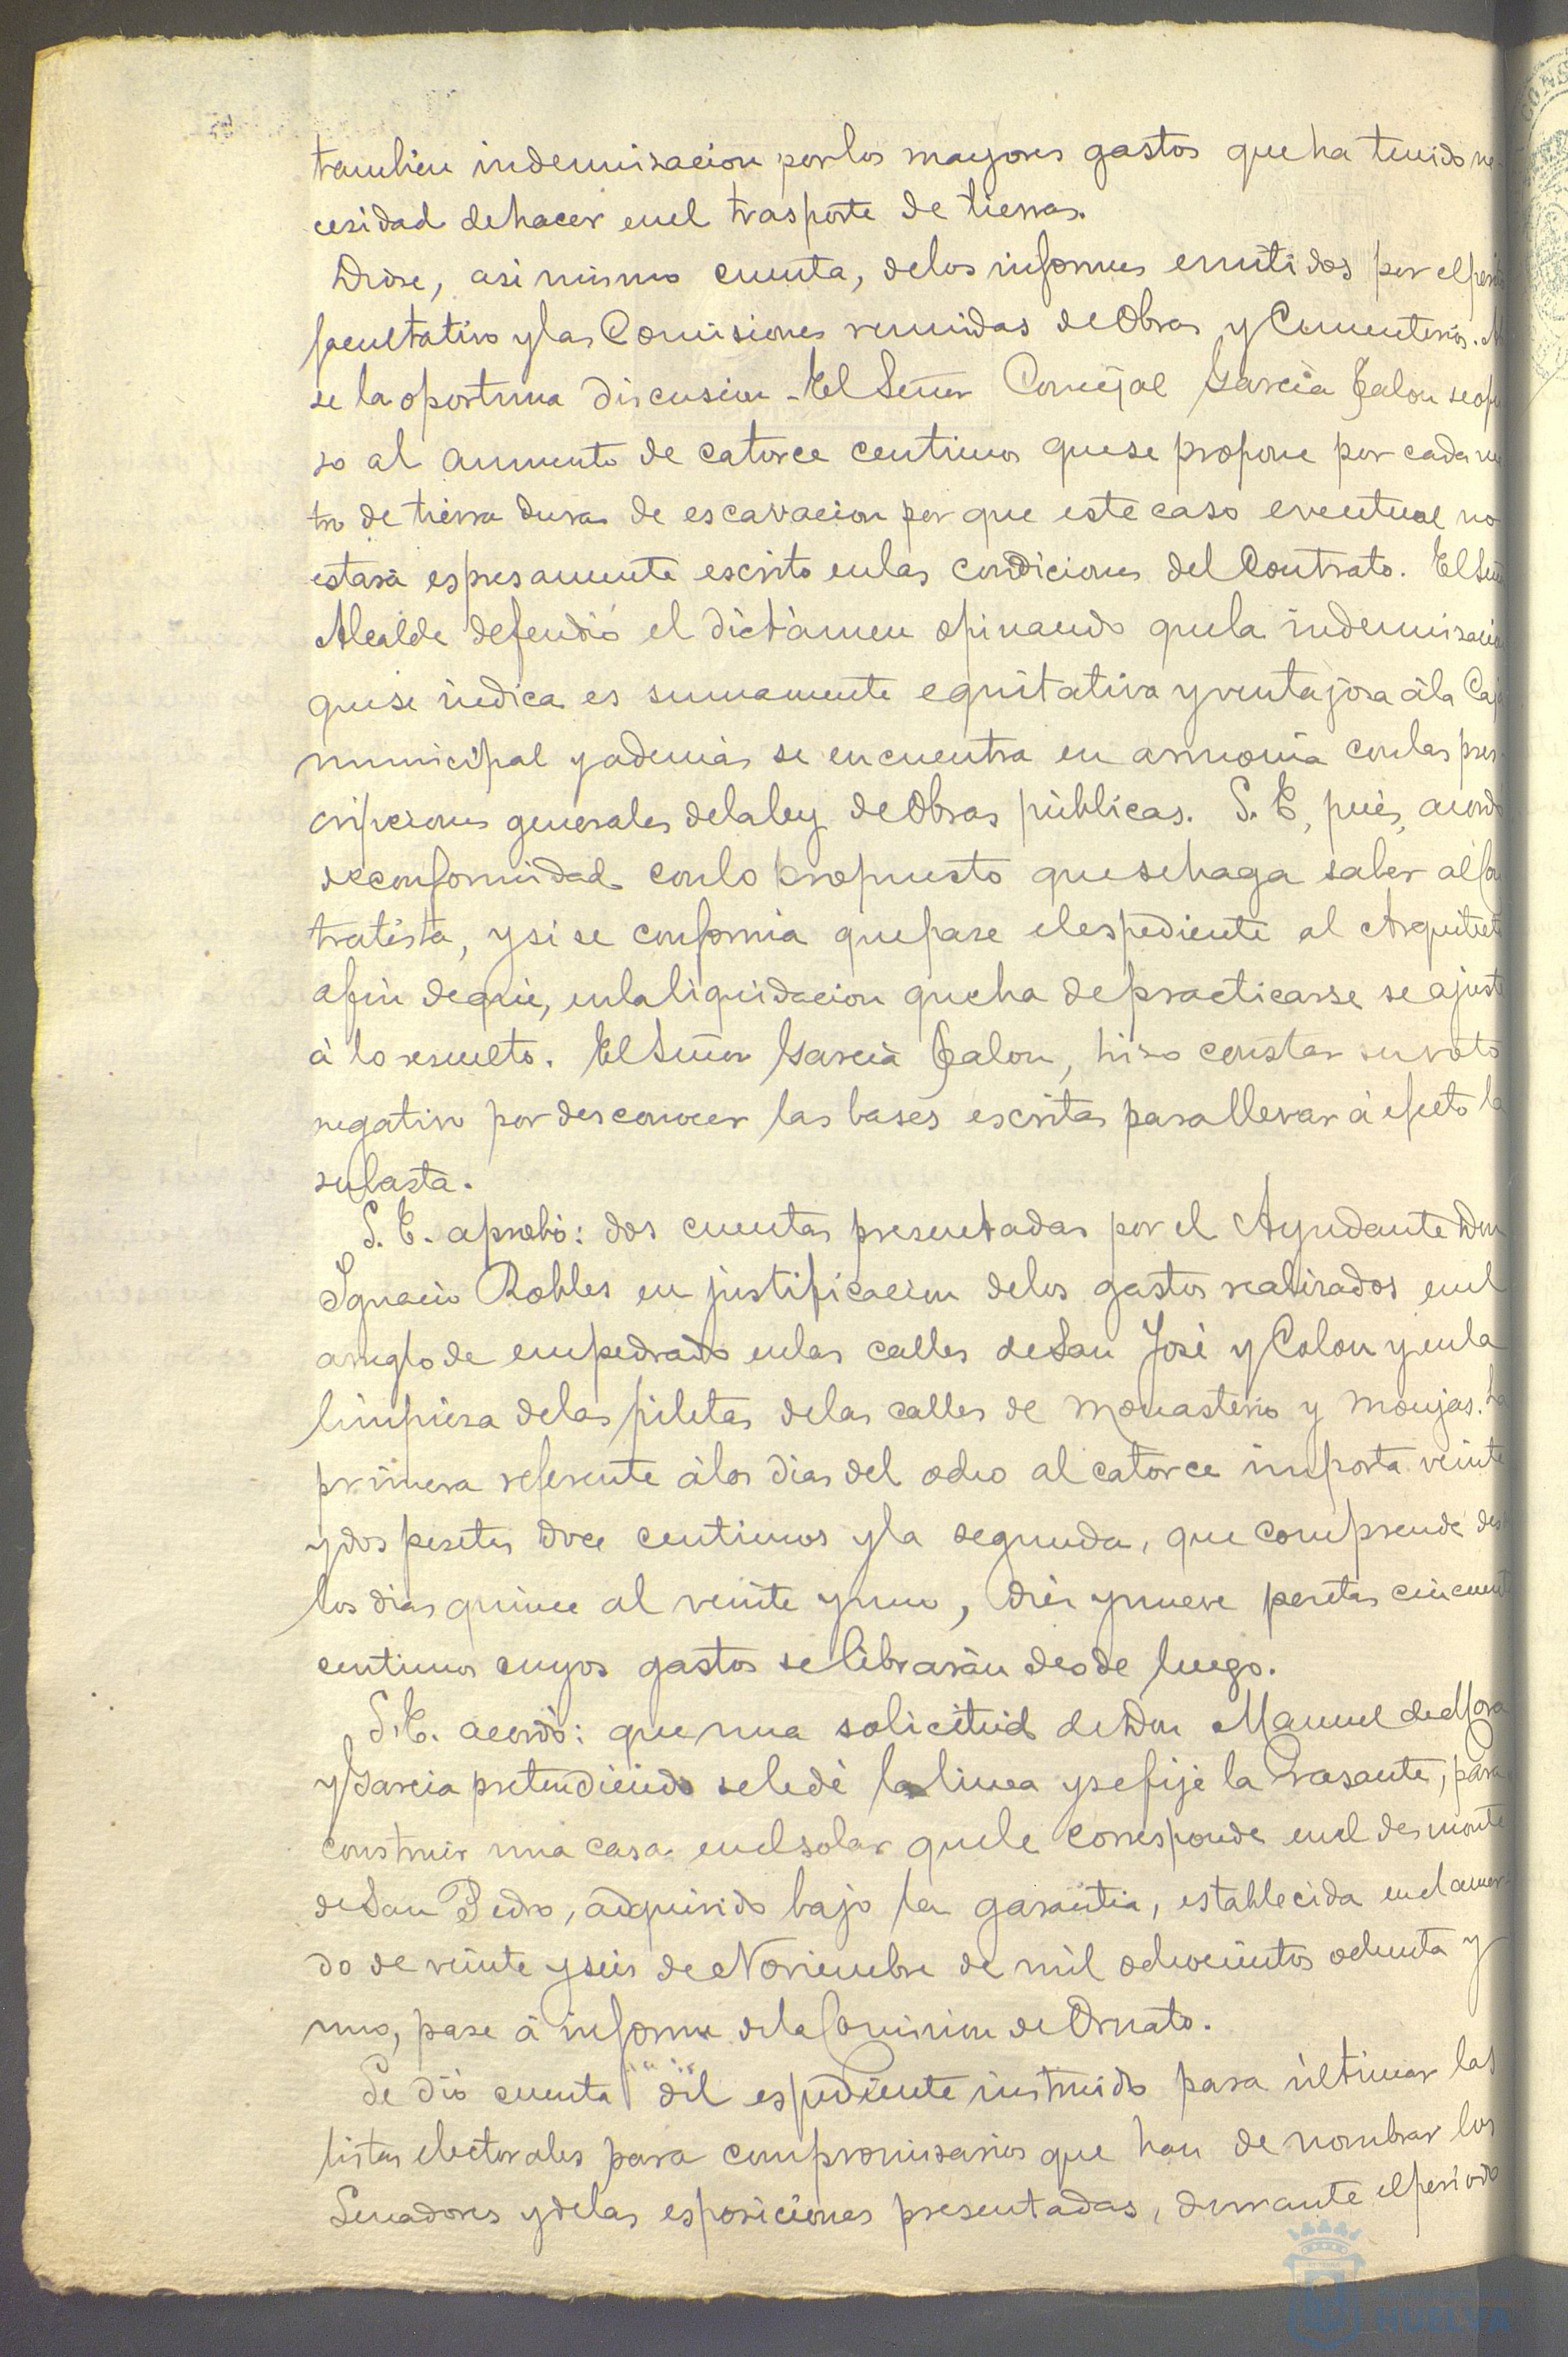 tambien indemnisacion por los mayores gastos que ha tenido ne-
cesidad de hacer en el trasporte de tierras.
Diose, asi mismo cuenta, de los informes emitidos por el perito
facultativo y las Comisiones reunidas de Obras y Cementerios.
se la oportuna discusion - El Señor Concejal Garcia Jalon se opu
so al aumento de catorce centimos que se propone por cada me
tro de tierra dura de escavacion por que este caso eventual no
estará espresamente escrito en las condiciones del Contrato. El Señor
Alcalde defendió el dictámen opinando que la indemnisacion
que se indica es sumamente equitativa y ventajosa á la Caja
municipal y además se encuentra en armonía con las pres-
cripciones generales de la ley de Obras públicas. S. E, pués, acordó
de conformidad con lo propuesto que se haga saber al con
tratista, y si se conforma que pase el espediente al Arquitecto
afin de que, en la liquidacion que ha de practicarse se ajuste
á lo resuelto. El Señor Garcia Jalon, hiso constar su voto
negativo por desconocer las bases escritas para llevar á efecto la
subasta.
S. E. aprobó: dos cuentas presentadas por el Ayudante Don
Ignacio Robles en justificacion de los gastos realizados en el
arreglo de empedrado en las calles de San José y Colon y en la
limpieza de las piletas de las calles de Monasterio y Monjas. La
primera referente á los dias del ocho al catorce importa veinte
y dos pesetas doce centimos y la segunda, que comprende des
los dias quince al veinte y uno, diez y nueve pesetas cincuenta
centimos cuyos gastos se librarán desde luego.
S. E. acordó: que una solicitud de Don Manuel de Mora
y Garcia pretendiendo se le dé la linea y se fije la rasante, para
construir una casa en el solar que le corresponde en el desmonte
de San Pedro, adquirido bajo la garantia, establecida en el acuer-
do de veinte y seis de Noviembre de mil ochocientos ochenta y
uno, pase á informe de la Comision de Ornato.
Se dió cuenta del espediente instruido para últimar las
listas electorales para compromisarios que han de nombrar los
Senadores y de las esposiciones presentadas, durante el periodo
HUELVA